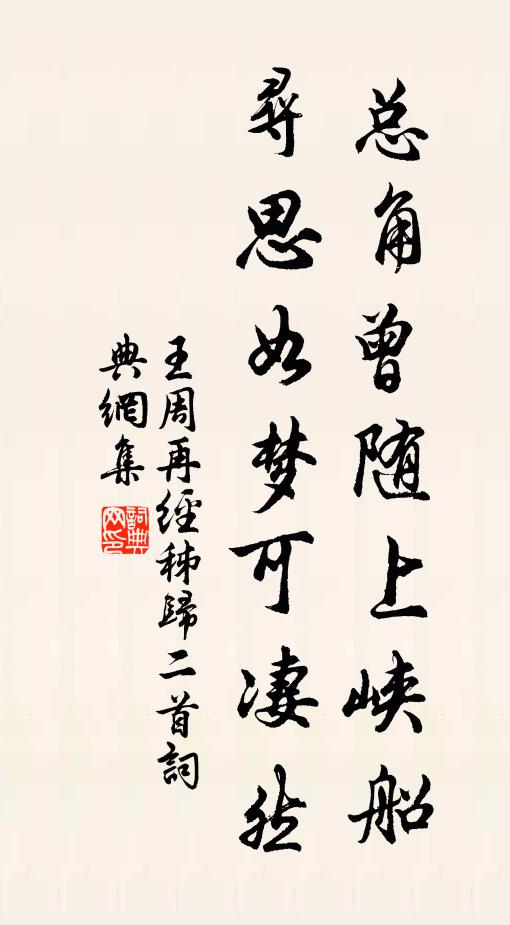 总角曾随上峡船
寻思如梦可凄然
王周再經秭歸二首詞
典網集
詞典
网印